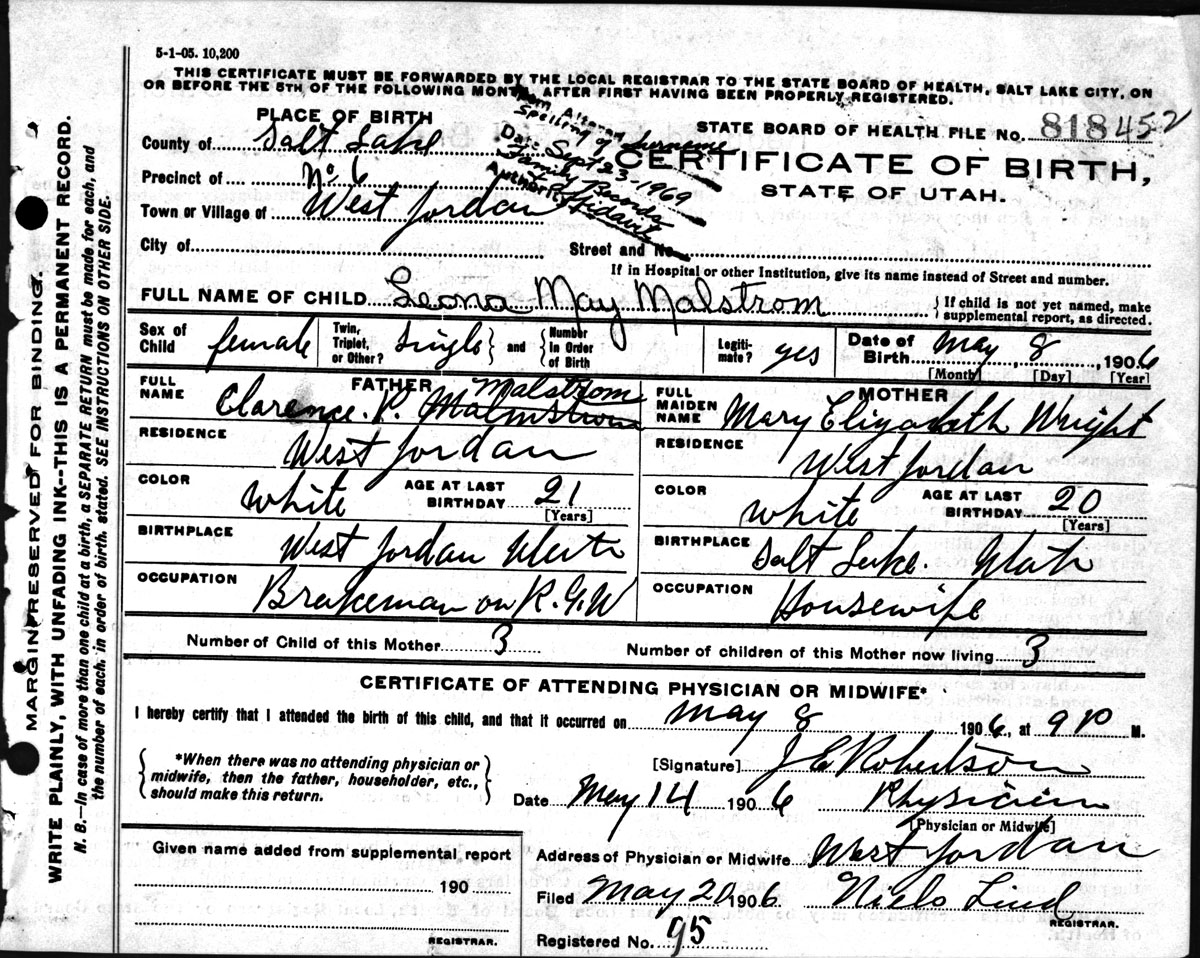 5-1-05. 10,200
THIS CERTIFICATE MUST BE FORWARDED BY THE LOCAL REGISTRAR TO THE STATE BOARD OF HEALTH, SALT LAKE CITY, ON
OR BEFORE THE 5TH OF THE FOLLOWING MONTH, AFTER FIRST HAVING BEEN PROPERLY REGISTERED.
PLACE OF BIRTH
County of Salt Lake
Precinct of No. 6
Town or Village of West Jordan
City of
Item Altered
Spelling of Surname
Date Sept 23-1969
Family Records
Authority Affidavit
STATE BOARD OF HEALTH FILE No. 818 452
CERTIFICATE OF BIRTH,
STATE OF UTAH.
Street and No.
If in Hospital or other Institution, give its name instead of Street and number.
FULL NAME OF CHILD Leona May Malstrom { If child is not yet named, make supplemental report, as directed.
Sex of Child female Twin, Triplet, or Other? Single } and { Number in Order of Birth Legiti- mate? yes Date of Birth May 8, 1906
[Month] [Day] [Year]
FATHER
FULL NAME Clarence. P. Malmstrom Malstrom
RESIDENCE West Jordan
COLOR White AGE AT LAST BIRTHDAY 21 [Years]
BIRTHPLACE West Jordan Utah
OCCUPATION Brakeman on R.G.W
MOTHER
FULL MAIDEN NAME Mary Elizabeth Wright
RESIDENCE West Jordan
COLOR White AGE AT LAST BIRTHDAY 20 [Years]
BIRTHPLACE Salt Lake. Utah
OCCUPATION Housewife
Number of Child of this Mother 3 Number of children of this Mother now living 3
CERTIFICATE OF ATTENDING PHYSICIAN OR MIDWIFE*
I hereby certify that I attended the birth of this child, and that it occurred on May 8 1906, at 9 P M.
{ *When there was no attending physician or midwife, then the father, householder, etc., should make this return. }
[Signature] J E Robertson
Date May 14 1906 Physician
[Physician or Midwife]
Given name added from supplemental report
190
REGISTRAR.
Address of Physician or Midwife West Jordan
Filed May 20 1906 Niels Lind
REGISTRAR.
Registered No. 95
MARGIN RESERVED FOR BINDING.
WRITE PLAINLY, WITH UNFADING INK--THIS IS A PERMANENT RECORD.
N. B.—In case of more than one child at a birth, a SEPARATE RETURN must be made for each, and
the number of each, in order of birth, stated. SEE INSTRUCTIONS ON OTHER SIDE.